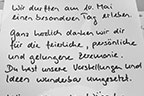 Wir durften am 10. Mai
einen besonderen Tag erleben.
Ganz herzlich danken wir dir
für die feierliche, persönliche
und gelungene Zeremonie.
Du hast unsere Vorstellungen und
Ideen wunderbar umgesetzt.